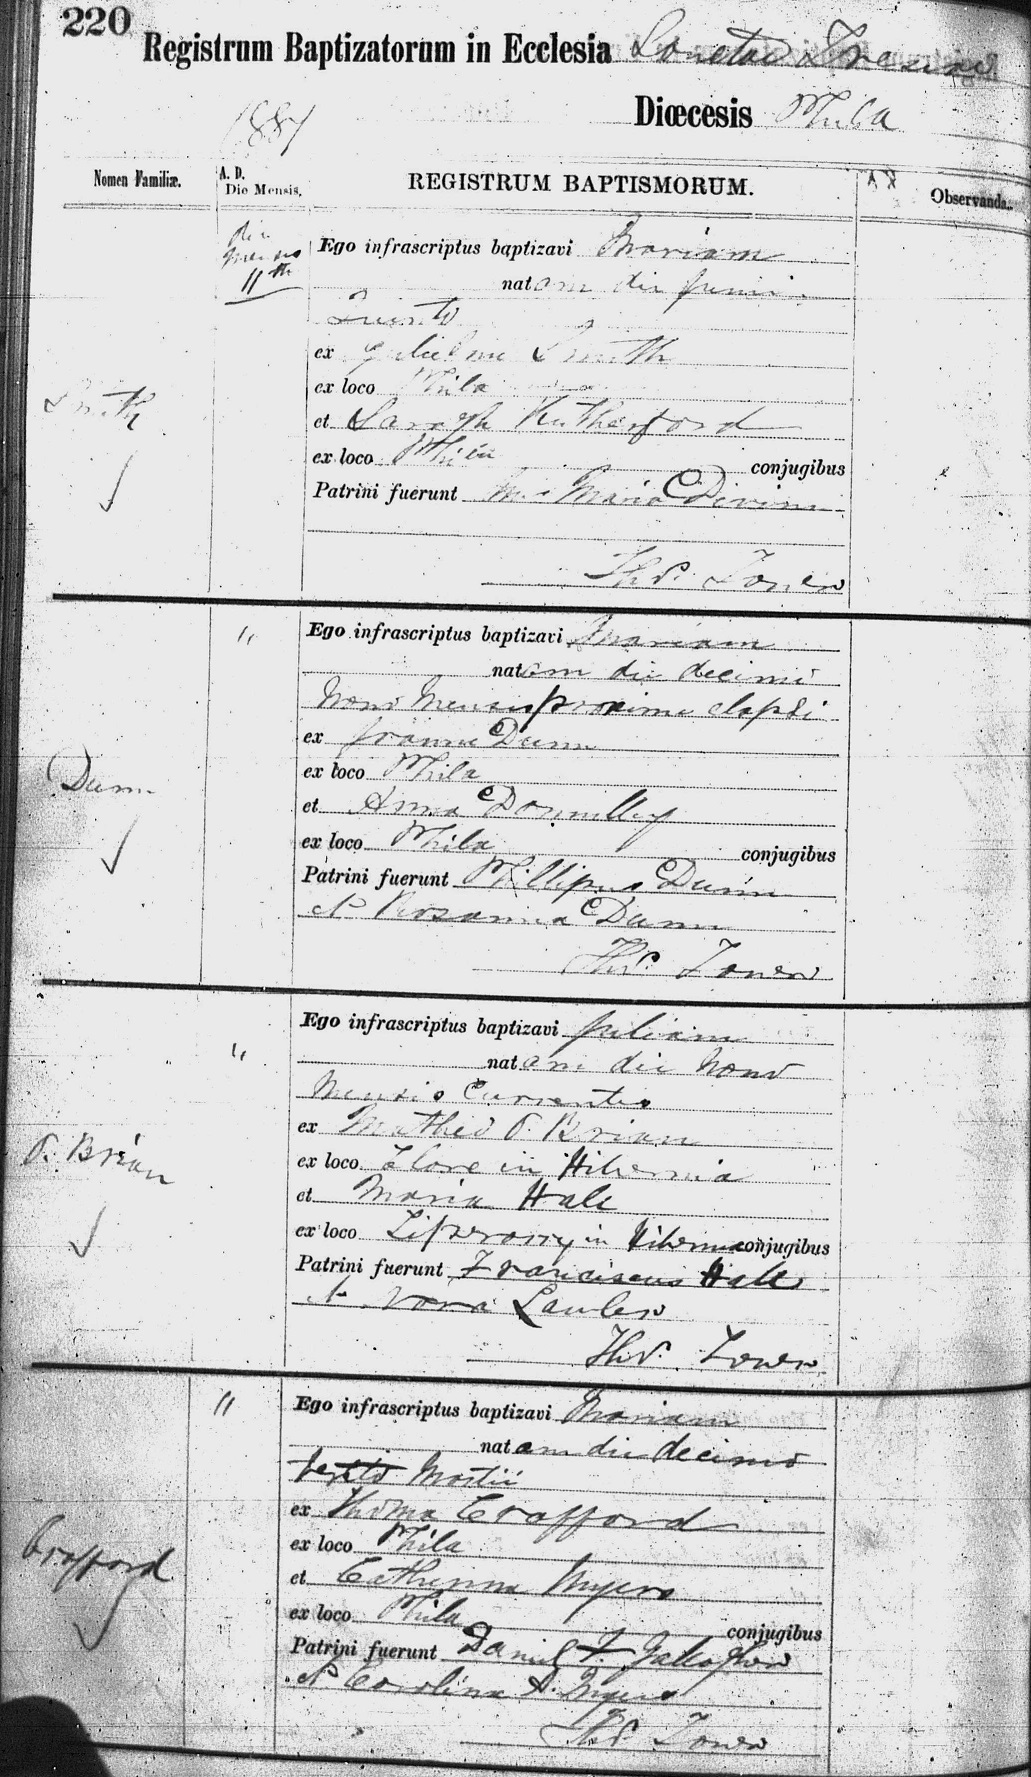 220
Registrum Baptizatorum in Ecclesia
Diœcesis Phila
1887
Nomen Familiæ.
A. D.
Die Mensis.
REGISTRUM BAPTISMORUM.
Observanda.
die
mensis
11th
Ego infrascriptus baptizavi Mariam
natam die Junii
ex Gulielmo Smith
ex loco Phila
Smith
et Saragh Rutherford
ex loco Phila
conjugibus
Patrini fuerunt Maria Devinn
Thos. Toner
"
Ego infrascriptus baptizavi Mariam
natam die decimi
Nono Mensis proximi elapsi
ex Joanne Dunn
Dunn
ex loco Phila
et Anna Donnelly
ex loco Phila
conjugibus
Patrini fuerunt Phillipus Dunn
et Rosanna Dunn
Thos. Toner
"
Ego infrascriptus baptizavi Juliam
natam die Nono
Mensis Currentis
ex Matheo O. Brian
O. Brian
ex loco Clare in Hibernia
et Maria Hale
ex loco Tiperarry in Hibernia conjugibus
Patrini fuerunt Franciscus Hale
et Nora Lawler
Thos. Toner
"
Ego infrascriptus baptizavi Mariam
natam die decimo
sexto Martii
ex Thoma Crafford
ex loco Phila
Crafford
et Catherina Myers
ex loco Phila
conjugibus
Patrini fuerunt Daniel F. Gallagher
et Carolina A. Myers
Thos Toner